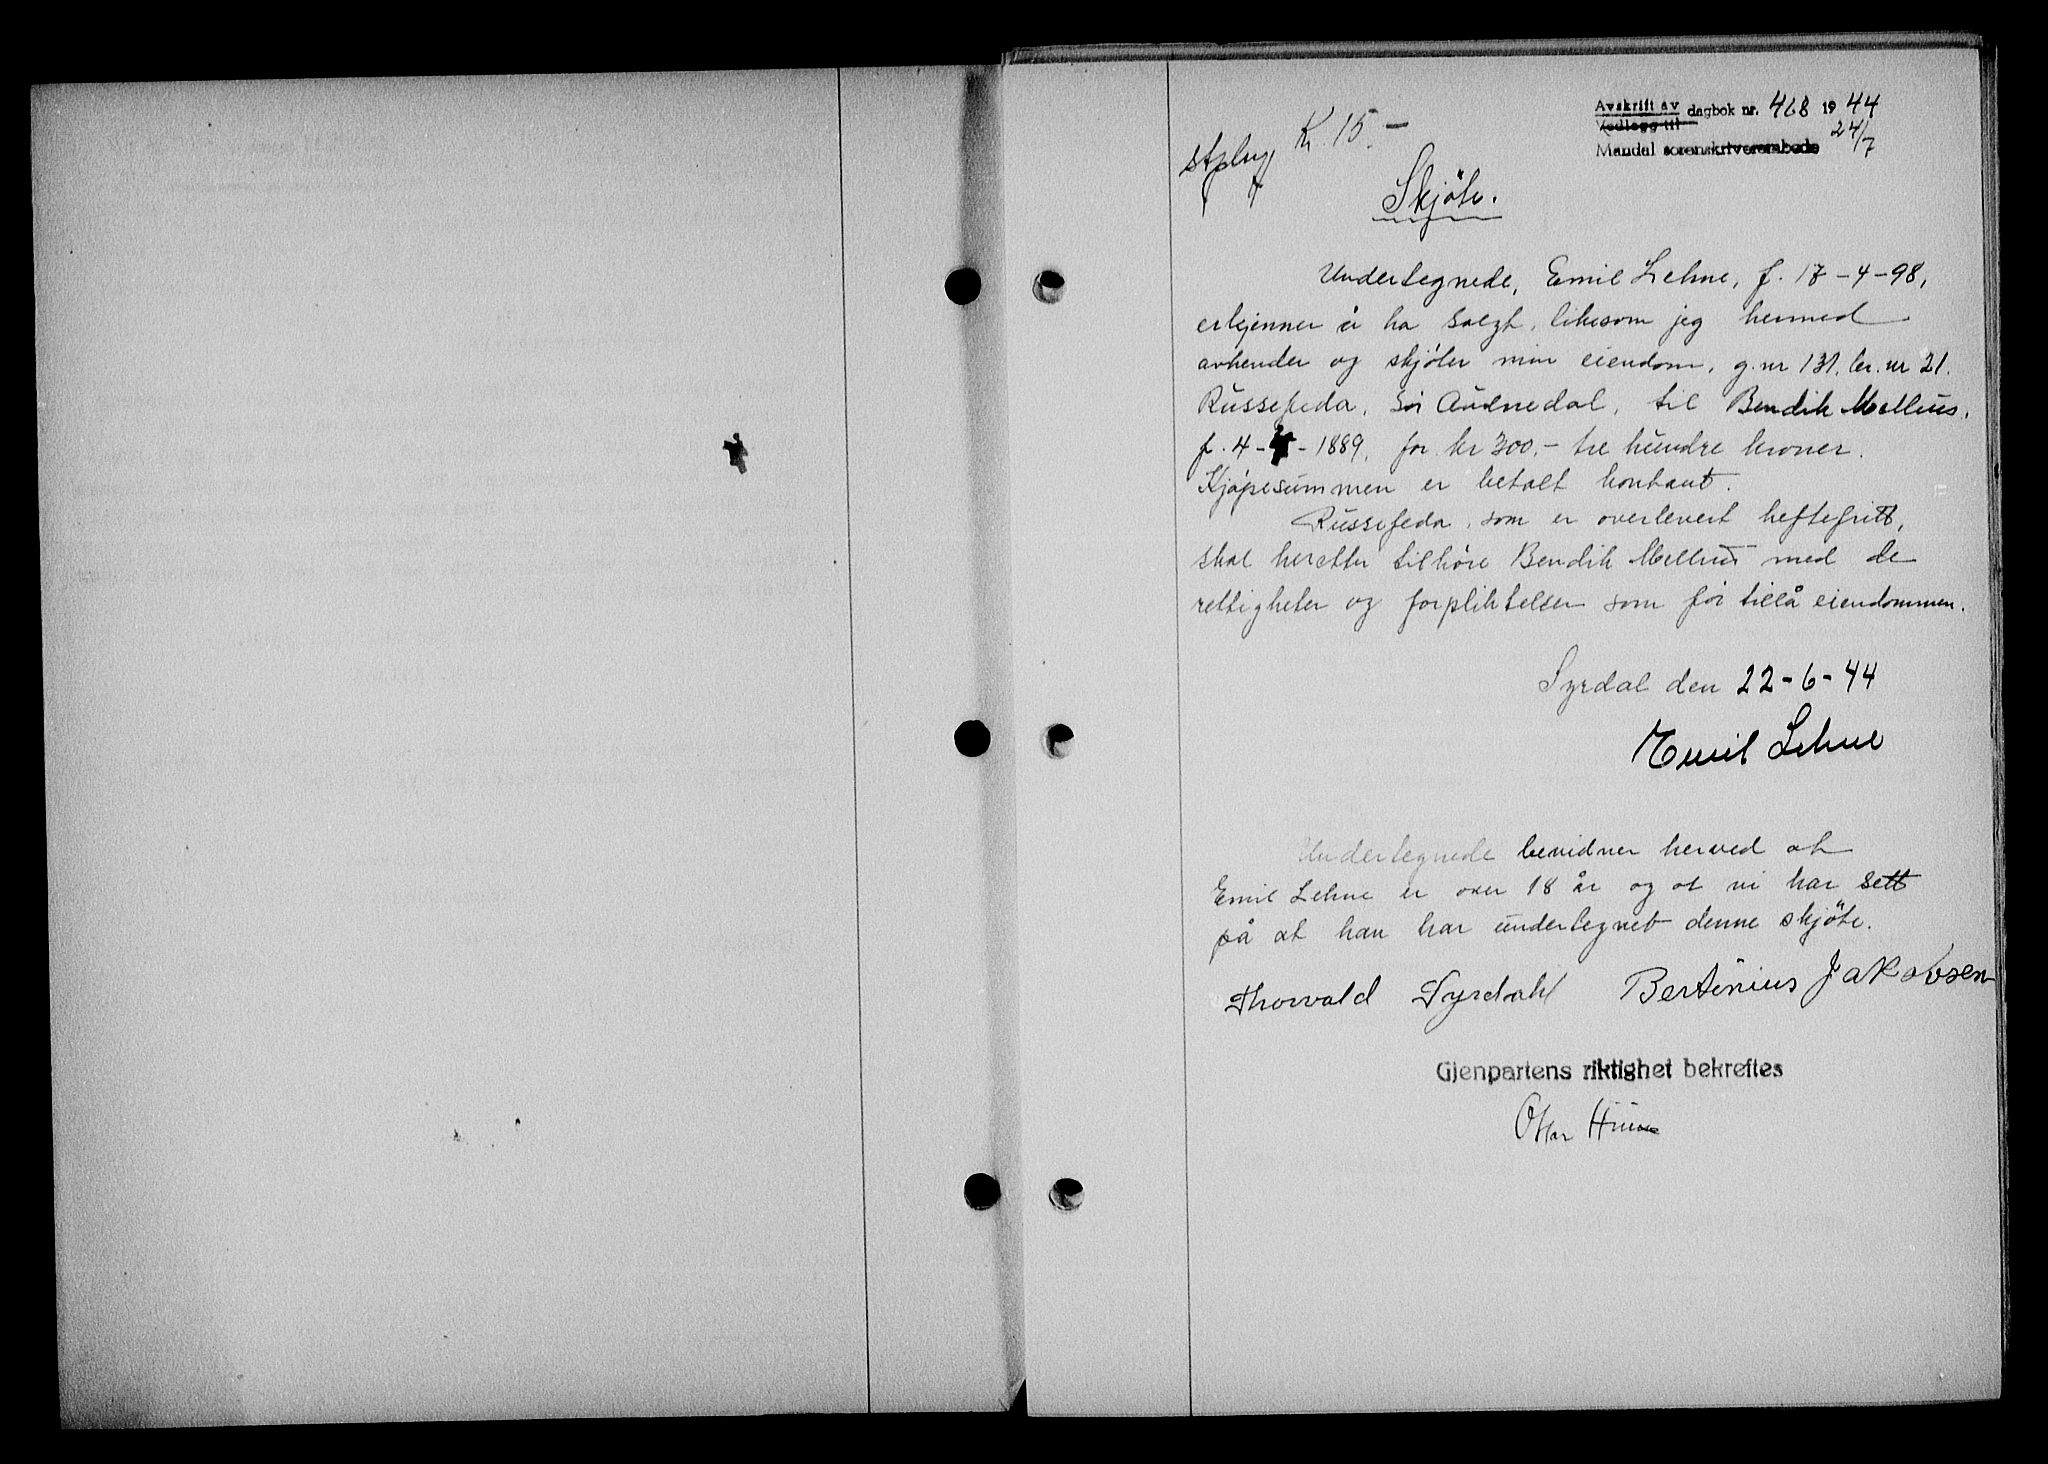 Avskrift av dagbok nr. 468 1944
Vedlegg til
24/7
Mandal sorenskriverembede
K. 15.-
Skjöte.
Undertegnede, Emil Lehne, f. 17-4-98,
erkjenner å ha solgt, likesom jeg hermed
avhender og skjöter min eiendom, g.nr 131. br. nr 21.
Russefeda, Sör Audnedal, til Bendik Mellius,
f. 4- -1889, for kr 300,- tre hundre kroner.
Kjöpesummen er betalt kontant.
Russefeda, som er overlevert heftefritt,
skal heretter tilhöre Bendik Mellius med de
rettigheter og forpliktelser som för tillå eiendommen.
Syrdal den 22-6-44
Emil Lehne
Undertegnede bevidner herved at
Emil Lehne er over 18 år og at vi har sett
på at han har undertegnet denne skjöte.
Thorvald Syrdahl Bertinius Jakobsen
Gjenpartens riktighet bekreftes